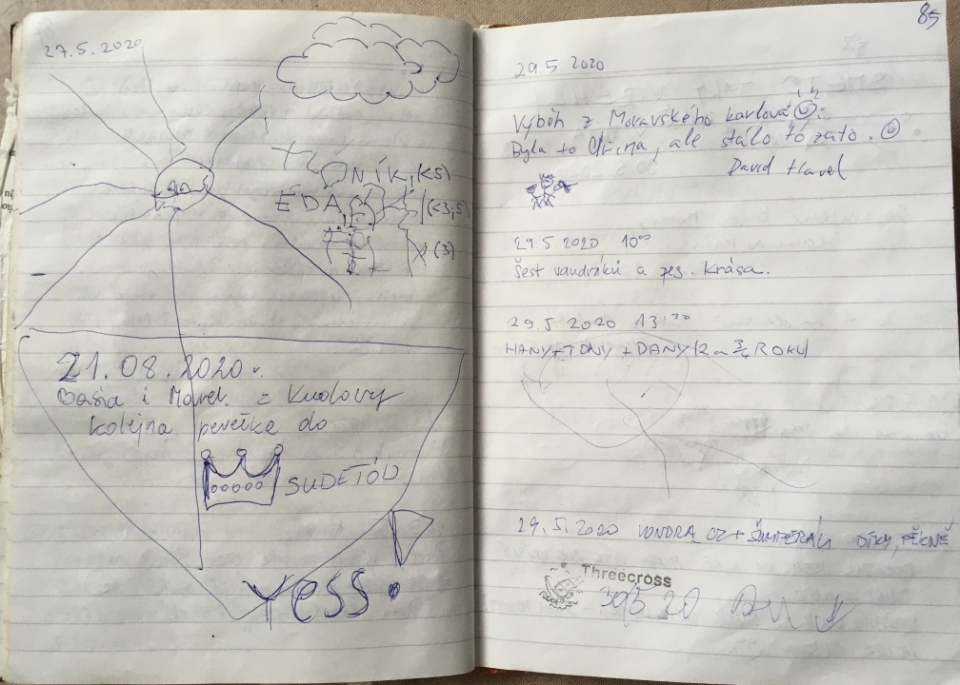 27.5.2020
NÍK (K5)
ÉDA
(3)
21.08.2020
Basia i Z Kudowy
kolejna perełka do
SUDETÓW
Yess
85
29.5 2020
Výběh z Moravského Karlova
Byla to dřina, ale stálo to zato.
David Havel
29.5 2020 10⁰⁰
Šest vandráků a pes. Krása.
29.5 2020 13:30
HANY+TONY + DANY (2 a 3/4 ROKU)
29.5.2020 VONDRA OZ + DÍKY, PĚKNÉ
Threecross
30/5 20